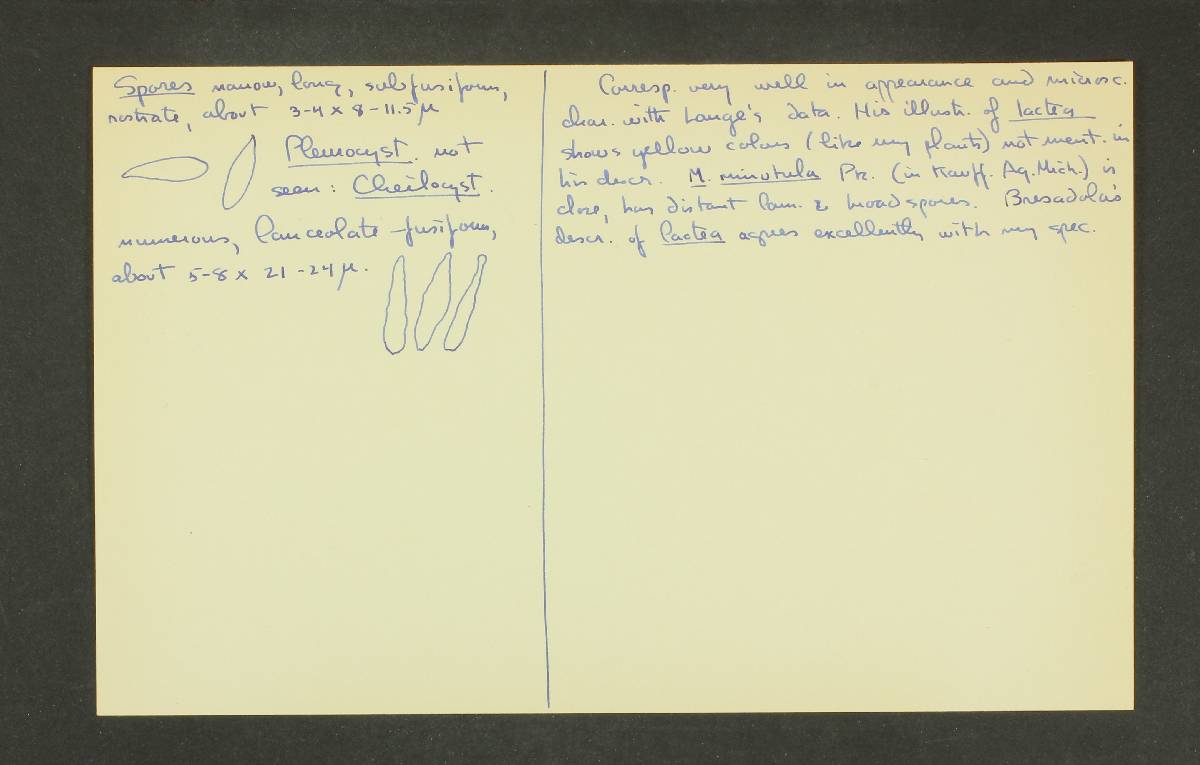 Spores narrow, long, subfusiform,
rostrate, about 3-4 x 8-11.5 µ
Pleurocyst. not
seen: Cheilocyst.
numerous, lanceolate-fusiform,
about 5-8 x 21-24 µ.
Corresp. very well in appearance and microsc.
char. with Lange's data. His illustr. of lactea
shows yellow colors (like my plants) not ment. in
his descr. M. minutula Pk. (in Kauff. Ag. Mich.) is
close, has distant lam. & broad spores. Bresadola's
descr. of lactea agrees excellently with my spec.